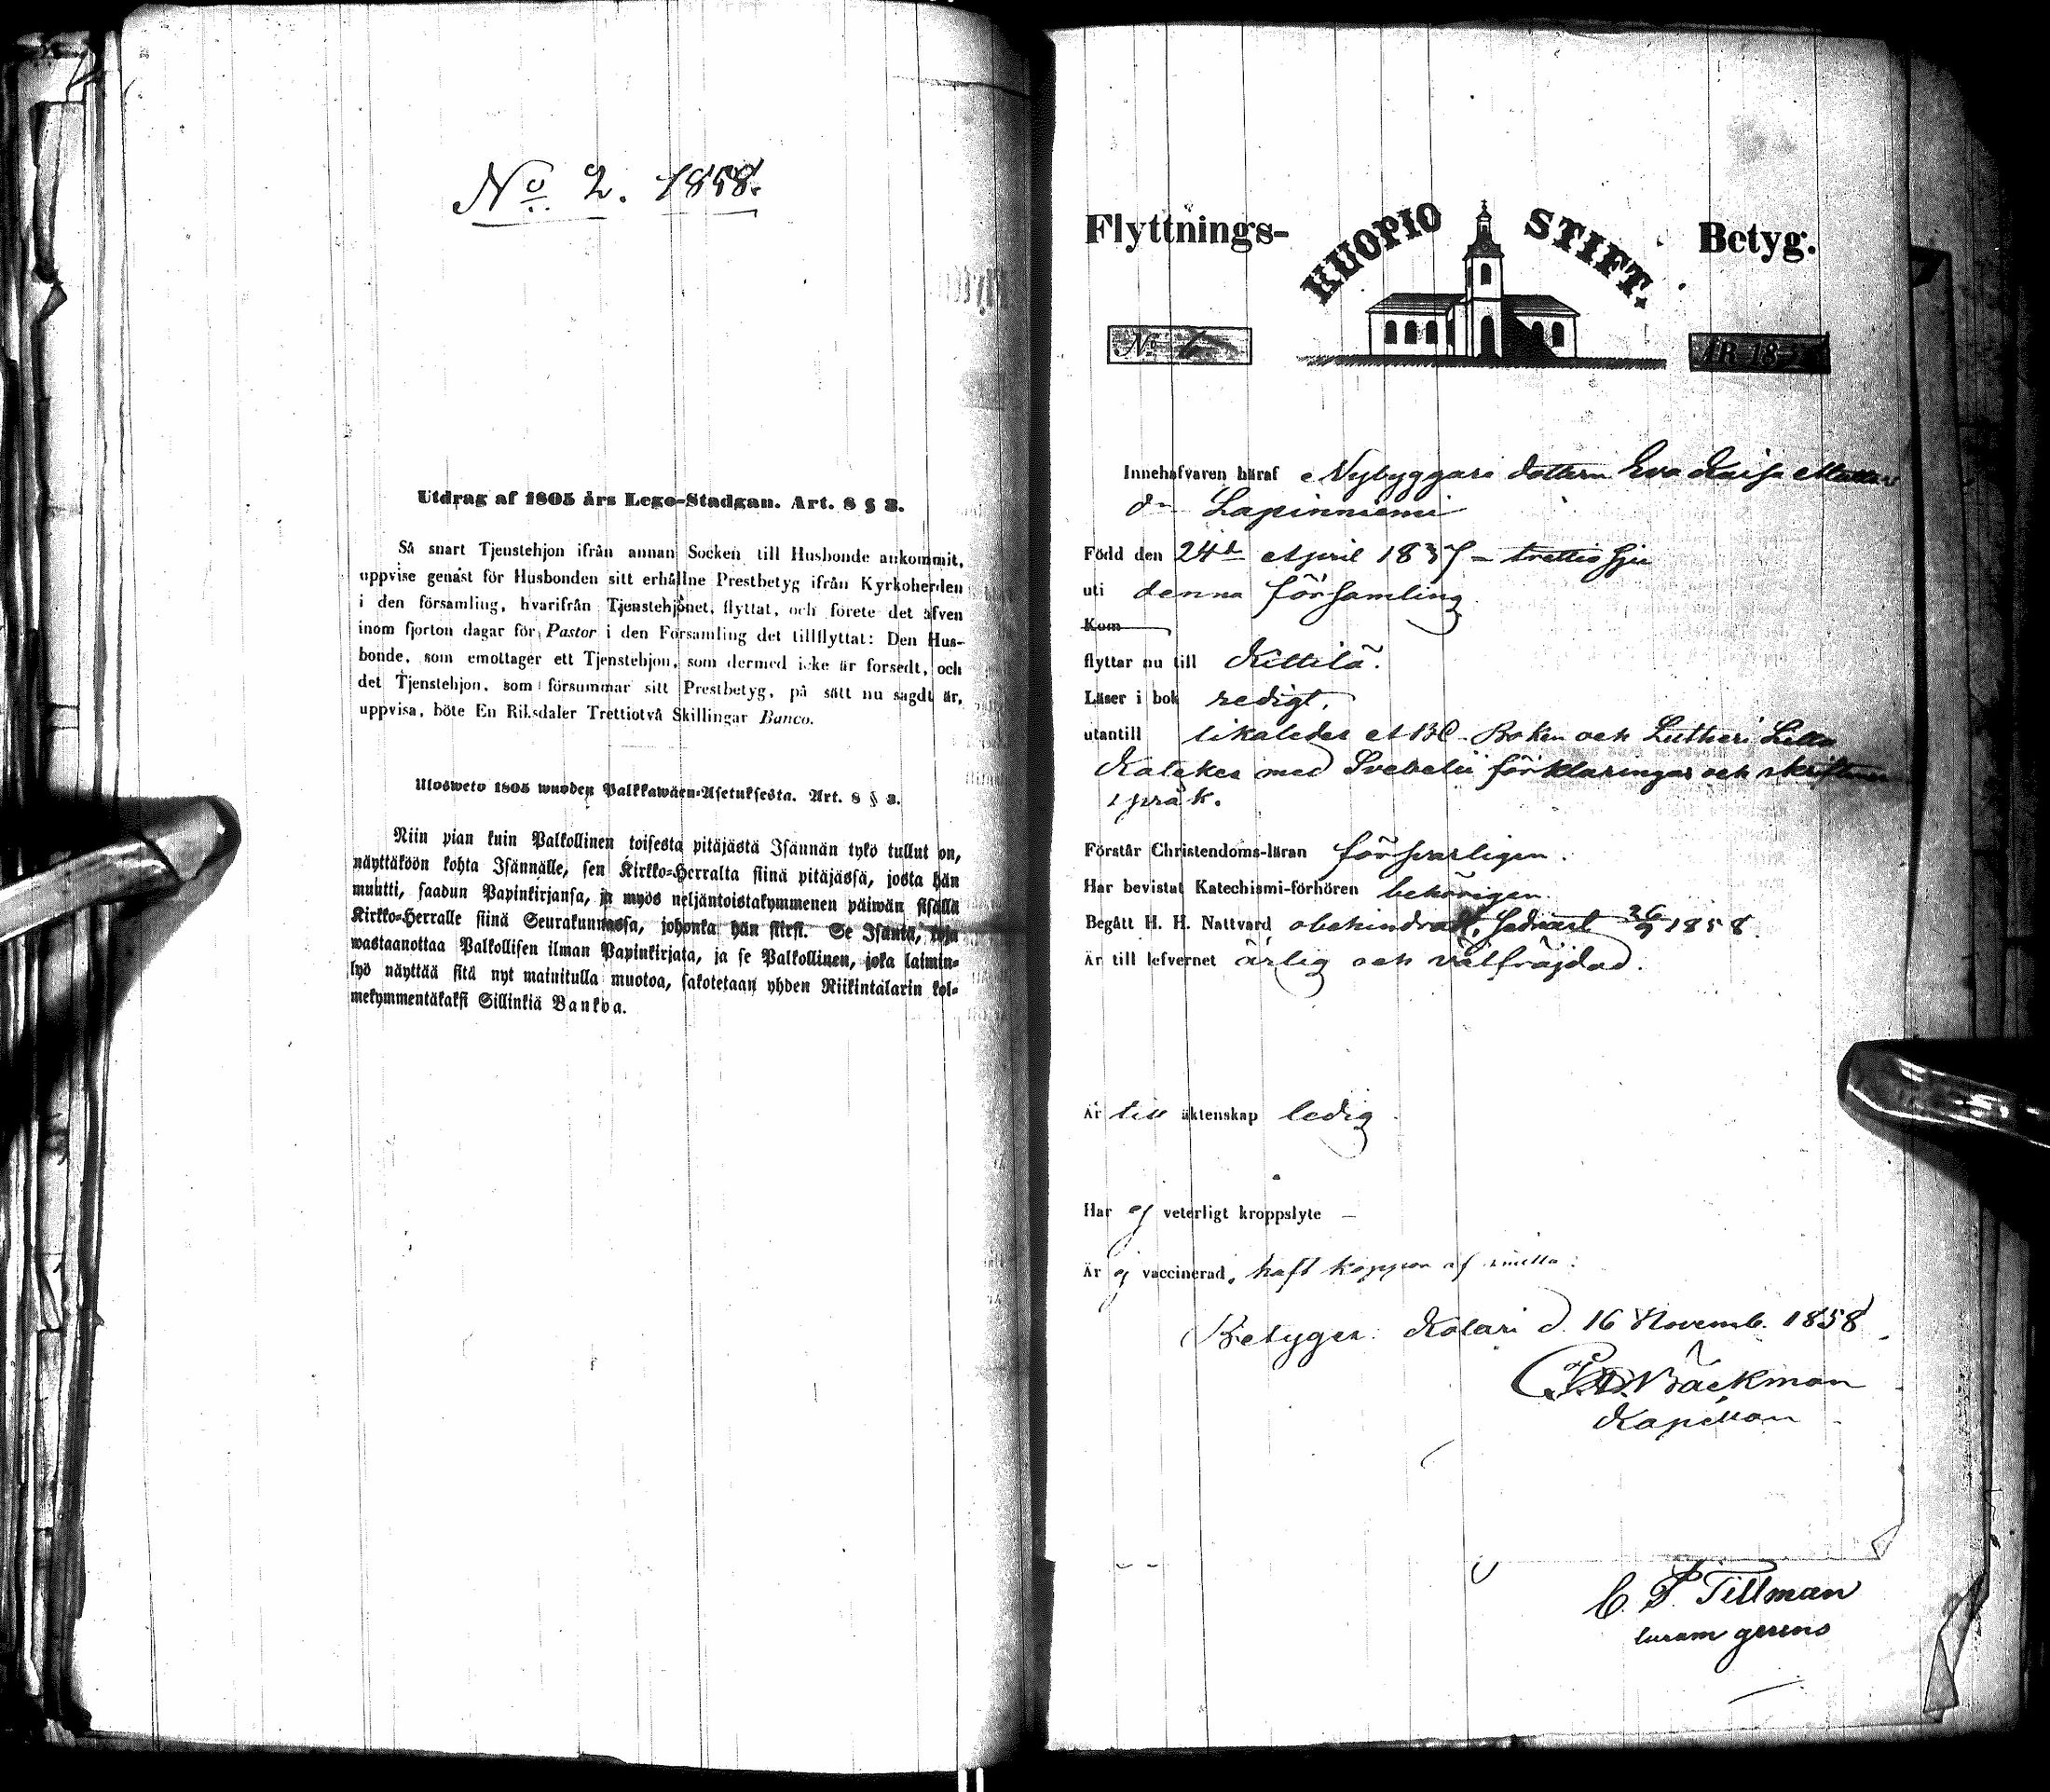 No 2. 1858.
Utdrag af 1805 års Lego-Stadgan. Art. 8 § 3.
Så snart Tjenstehjon ifrån annan Socken till Husbonde ankommit,
uppvise genast för Husbonden sitt erhållne Prestbetyg ifrån Kyrkoherden
i den församling, hvarifrån Tjenstehjonet, flyttat, och förete det äfven
inom fjorton dagar för Pastor i den Församling det tillflyttat: Den Hus-
bonde, som emottager ett Tjenstehjon, som dermed icke är forsedt, och
det Tjenstehjon, som försummar sitt Prestbetyg, på sätt nu sagdt är,
uppvisa, böte En Riksdaler Trettiotvå Skillingar Banco.
Ulosweto 1805 wuoden Palkkawäen-Asetuksesta. Art. 8 § 3.
Niin pian kuin Palkollinen toisesta pitäjästä Isännän tykö tullut on,
näyttäköön kohta Isännälle, sen Kirkko-Herralta siinä pitäjässä, josta hän
muutti, saadun Papinkirjansa, ja myös neljäntoistakymmenen päiwän sisällä
Kirkko-Herralle siinä Seurakunnassa, johonka hän siirsi. Se Isäntä, joja
wastaanottaa Palkollisen ilman Papinkirjata, ja se Palkollinen, joka laimin-
lyö näyttää sitä nyt mainitulla muotoa, sakotetaan yhden Riikintalarin kol-
mekymmentäkaksi Sillinkiä Bankoa.
Flyttnings- KUOPIO STIFT. Betyg.
No 6 ÅR 18
Innehafvaren häraf Nybyggare dottern Eva Kaisa Matts
dr Lapinniemi
Född den 24de April 1837 - trettiosju
uti denna församling
Kom
flyttar nu till Kittilä.
Läser i bok redigt,
utantill likaledes ABC-Boken och Lutheri Lilla
Katekes med Svebelii förklaringar och skriftenes
språk.
Förstår Christendoms-läran försvarligen.
Har bevistat Katechismi-förhören behörigen.
Begått H. H. Nattvard obehindradt, sednast 26/9 1858.
Är till lefvernet ärlig och välfräjdad.
Är till äktenskap ledig.
Har ej veterligt kroppslyte —
Är ej vaccinerad, haft koppor af smitta.
Betygar. Kolari d. 16 Novemb. 1858.
Bäckman
Kapellan
C. P. Tillman
curam gerens